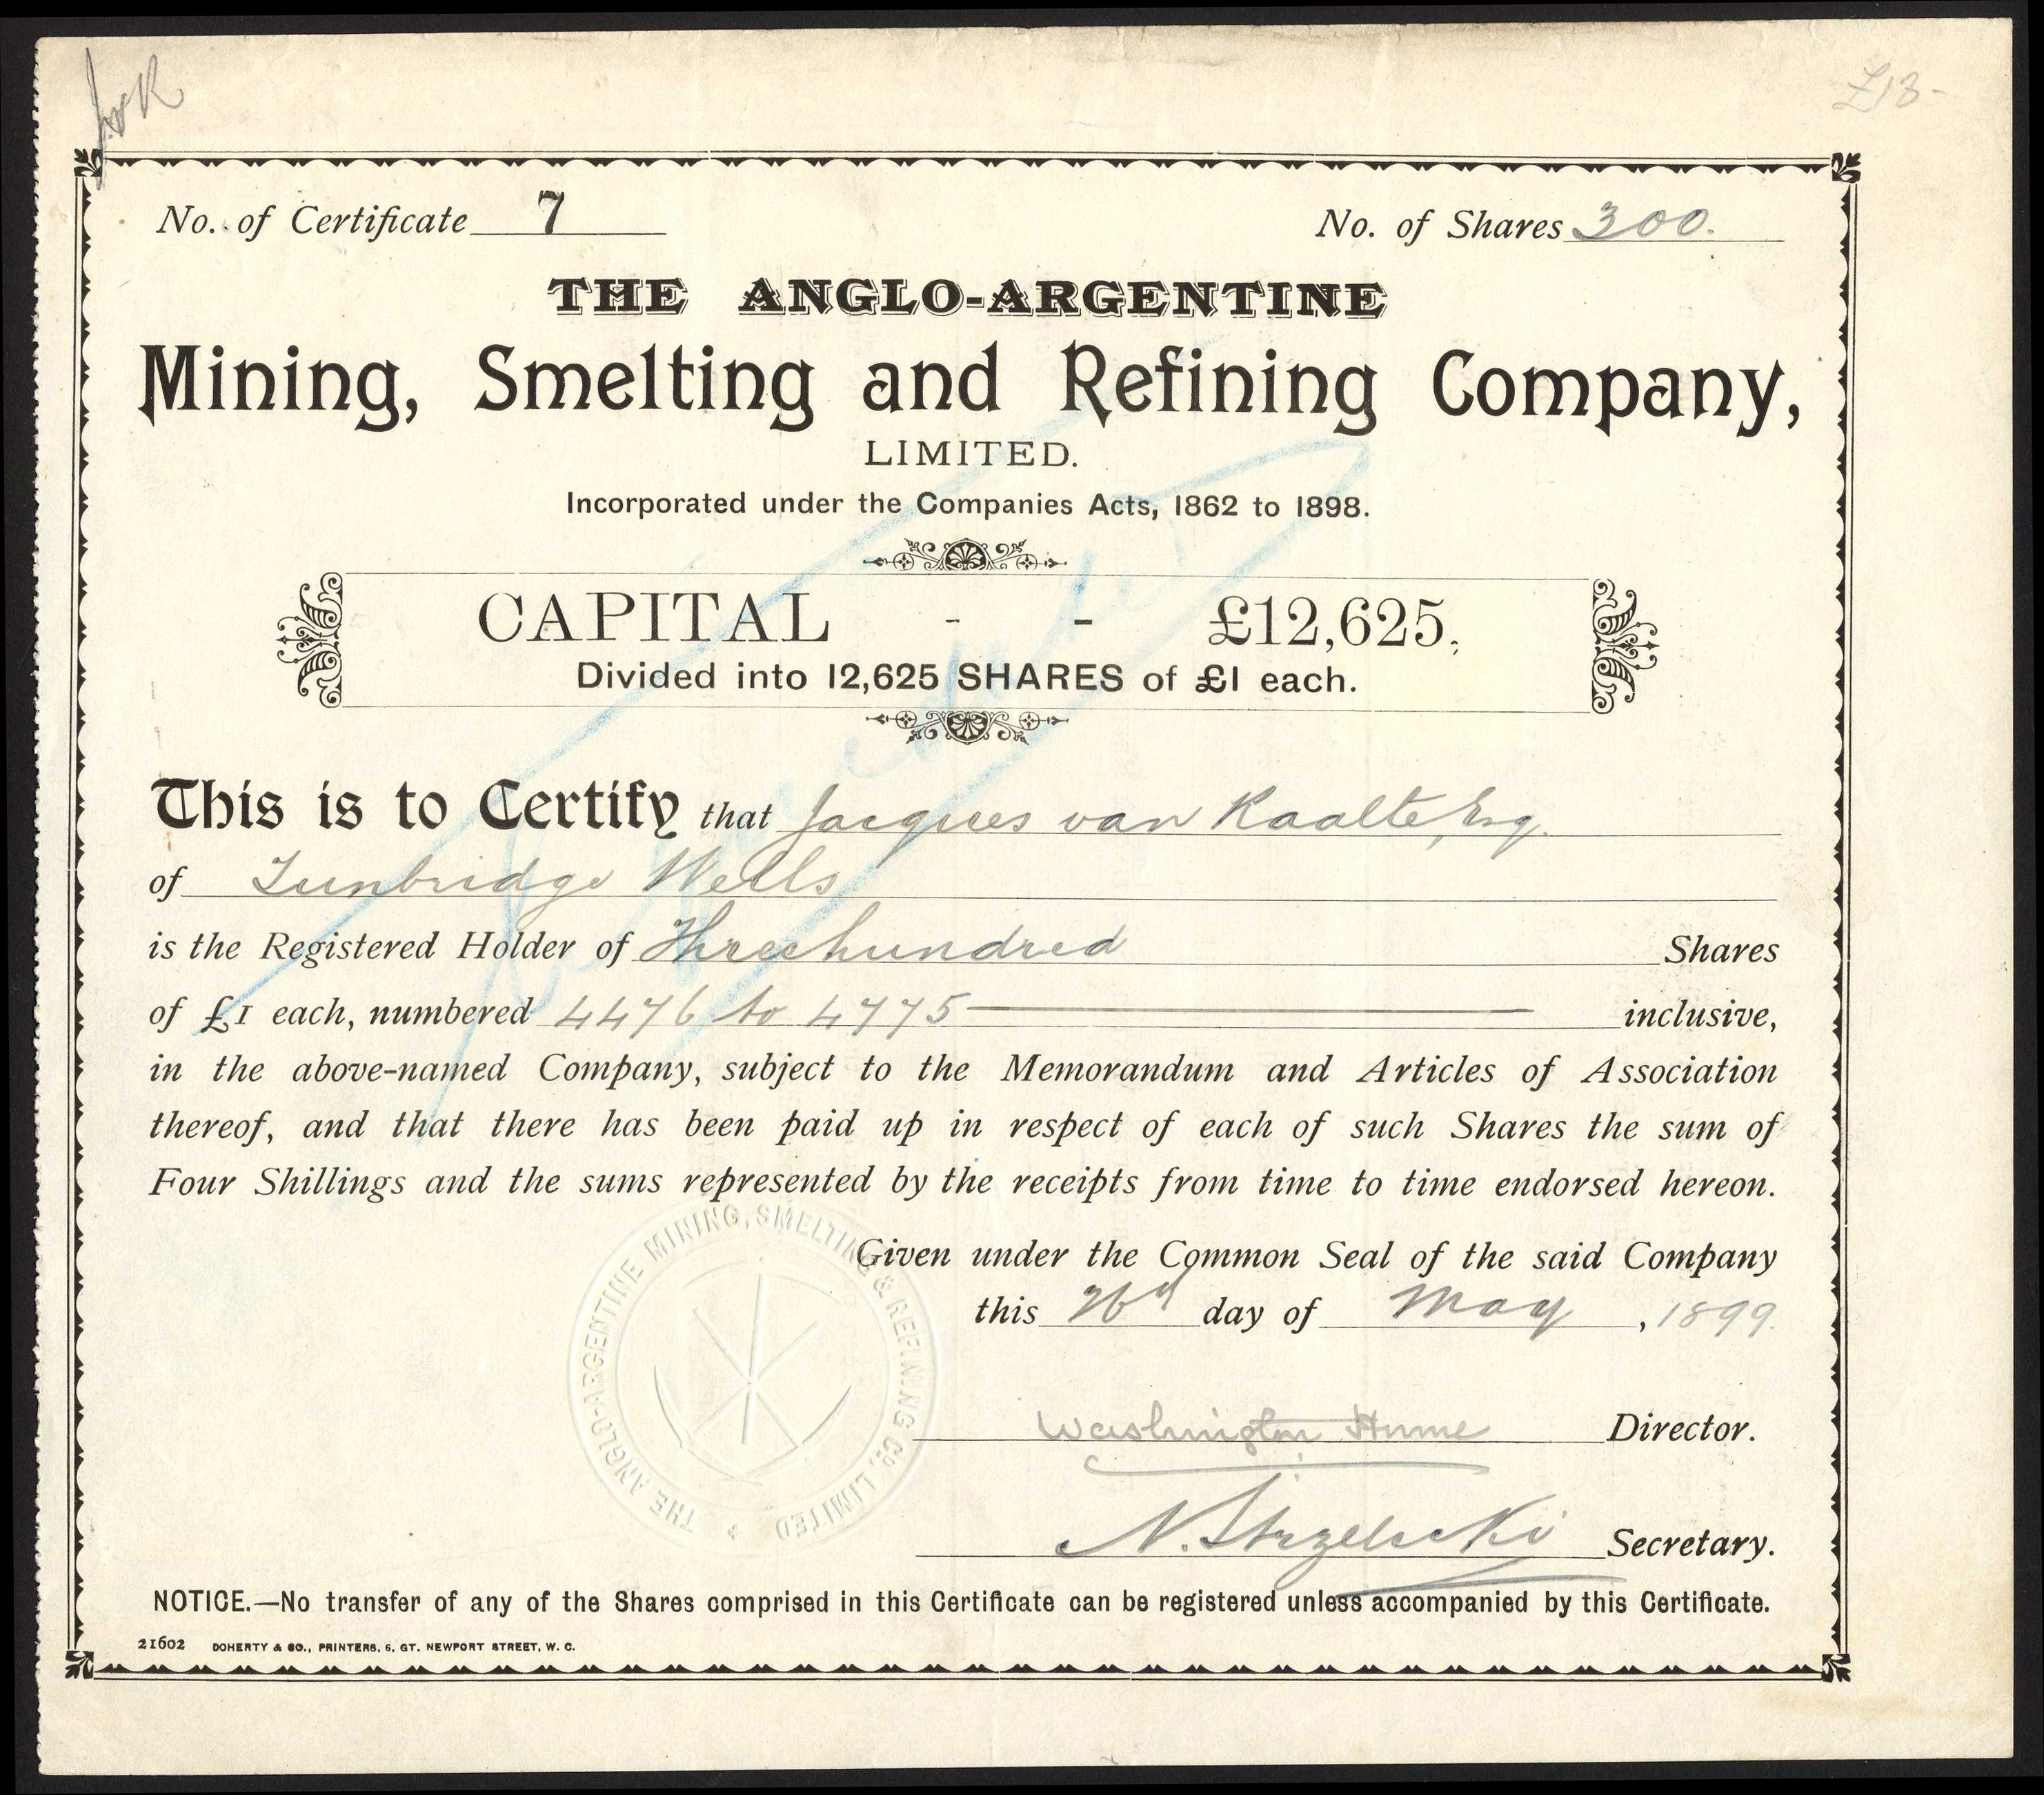 £13-
No. of Certificate 7
No. of Shares 300.
THE ANGLO-ARGENTINE
Mining, Smelting and Refining Company,
LIMITED.
Incorporated under the Companies Acts, 1862 to 1898.
CAPITAL - - £12,625.
Divided into 12,625 SHARES of £1 each.
This is to Certify that Jacques van Raalte, Esq.
of Tunbridge Wells
is the Registered Holder of Threehundred Shares
of £1 each, numbered 4476 to 4775 inclusive,
in the above-named Company, subject to the Memorandum and Articles of Association
thereof, and that there has been paid up in respect of each of such Shares the sum of
Four Shillings and the sums represented by the receipts from time to time endorsed hereon.
THE ANGLO-ARGENTINE MINING, SMELTING & REFINING CO. LIMITED
Given under the Common Seal of the said Company
this 26th day of May, 1899.
Washington Hume Director.
N. Strzelecki Secretary.
NOTICE.—No transfer of any of the Shares comprised in this Certificate can be registered unless accompanied by this Certificate.
21602 DOHERTY & CO., PRINTERS, 6, GT. NEWPORT STREET, W. C.